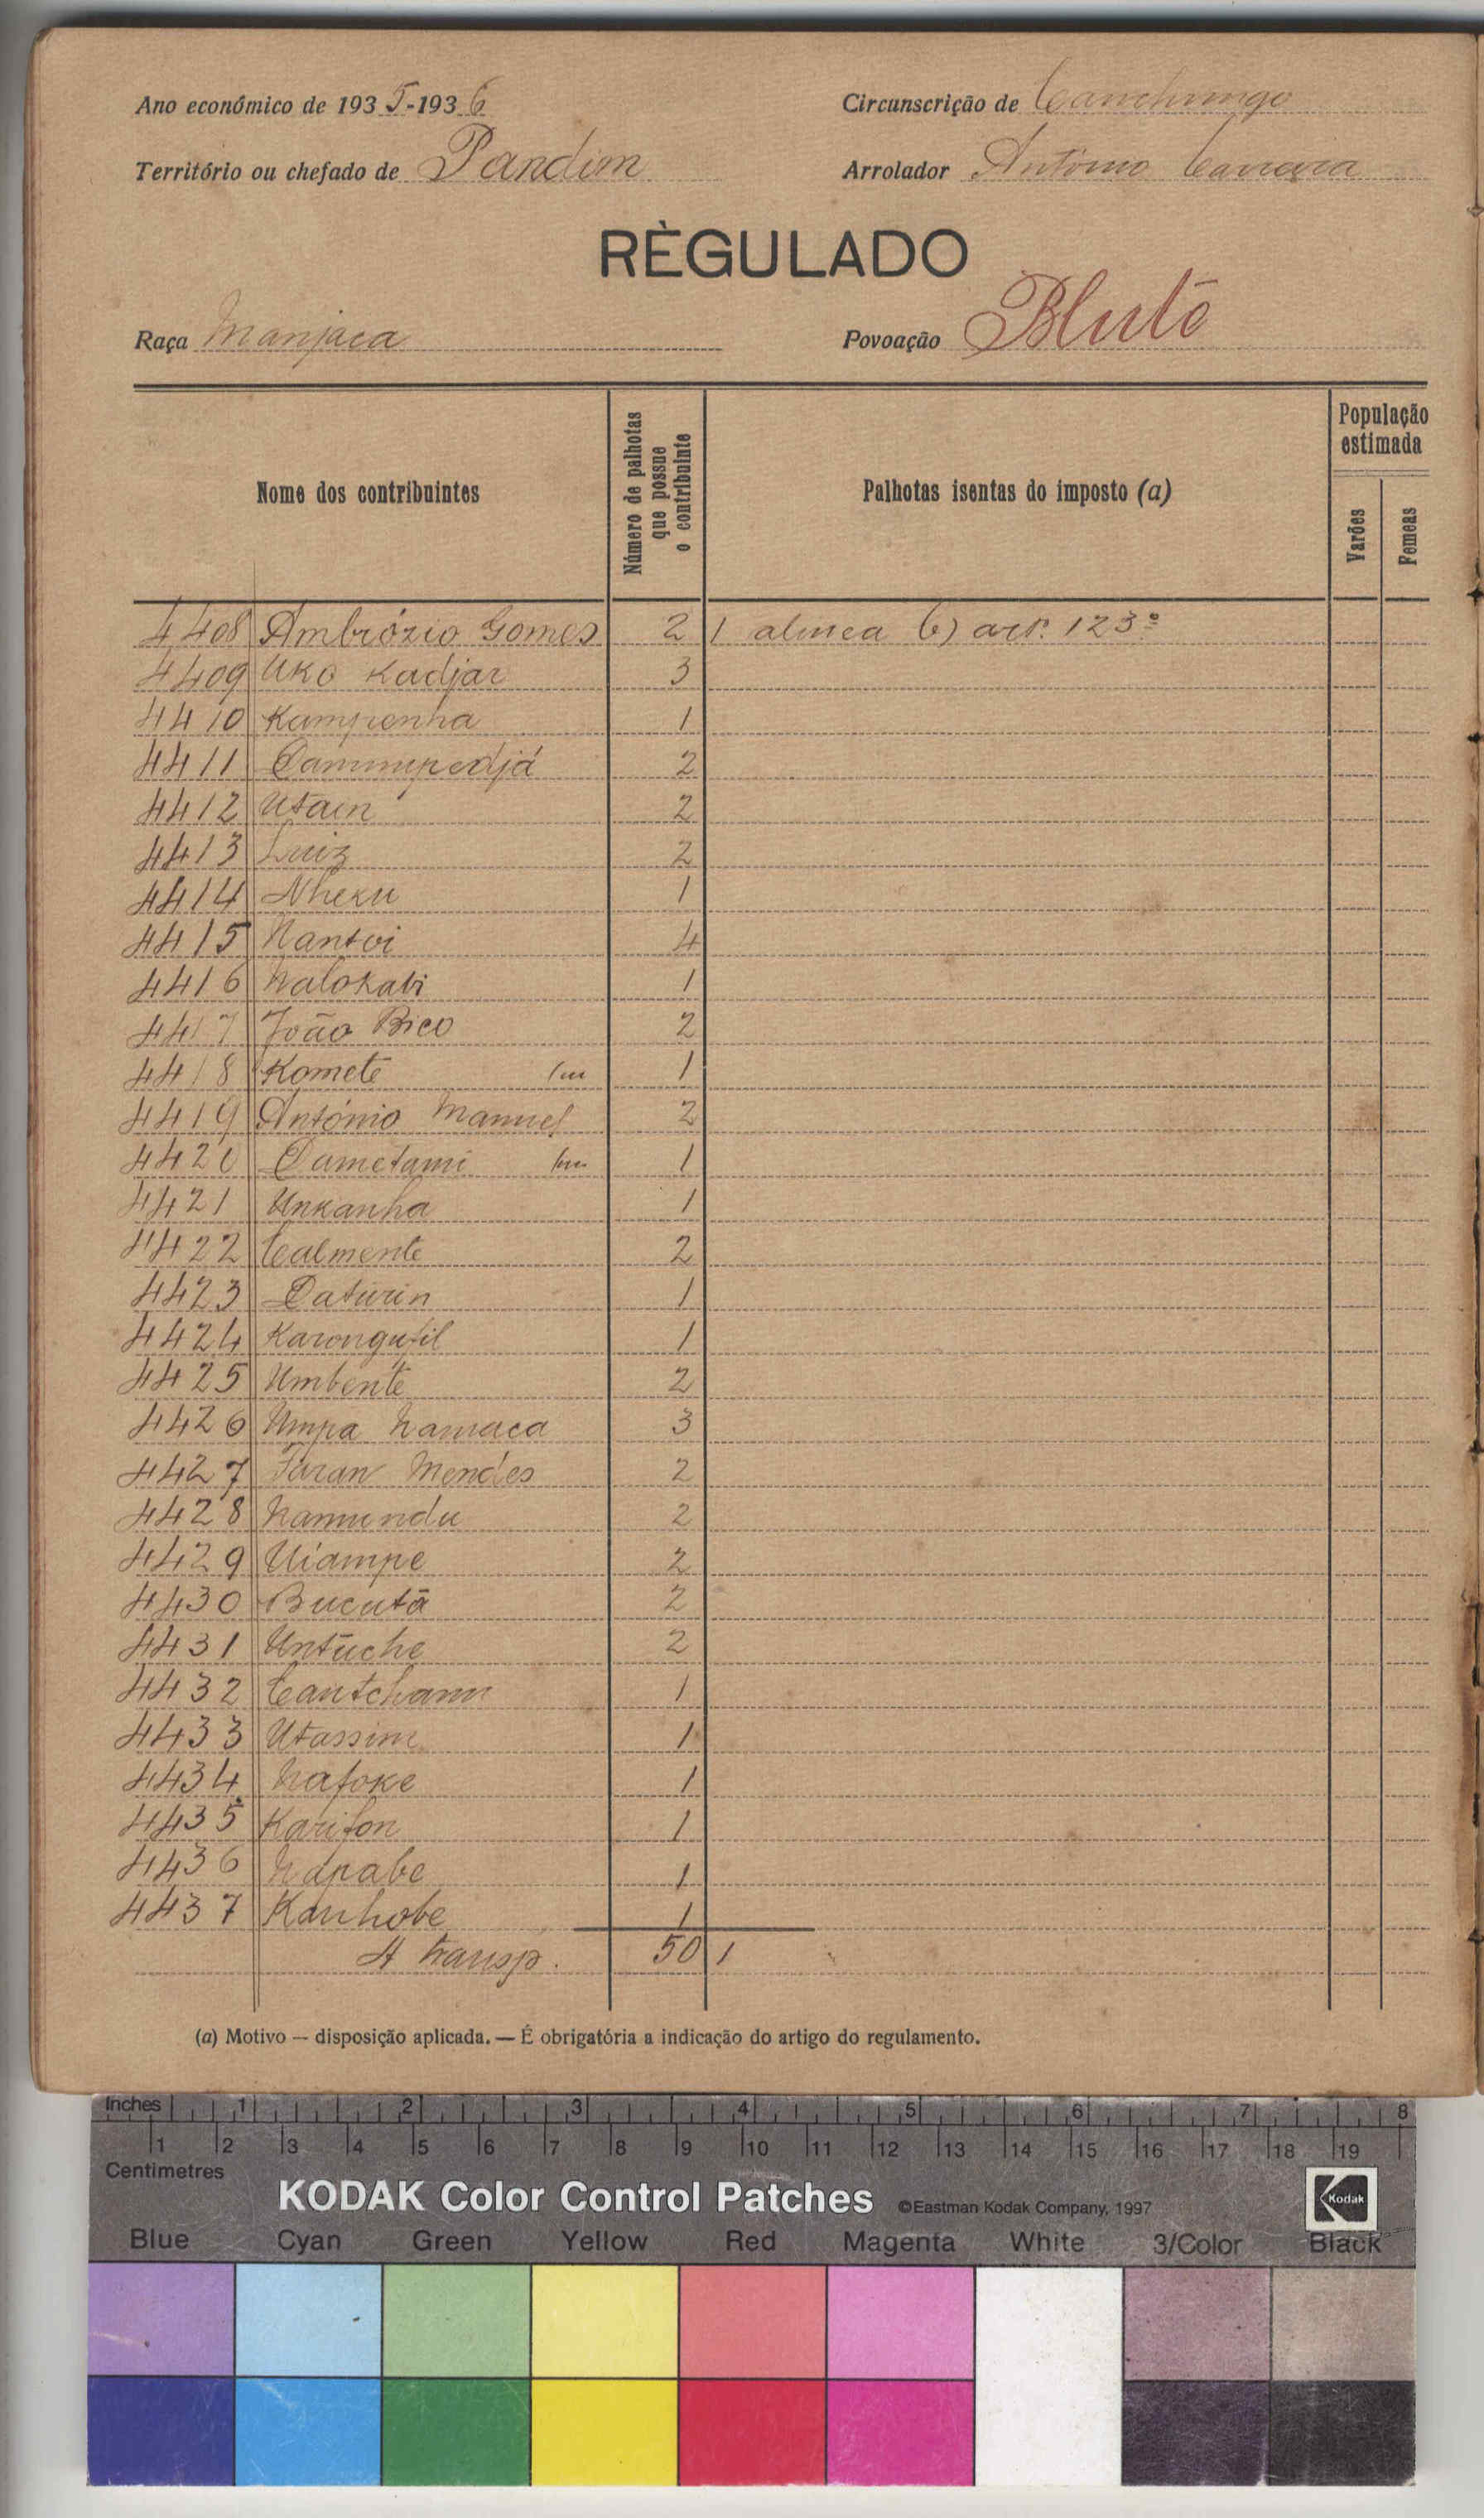 Ano económico de 1935-1936
Circunscrição de Canchungo
Território ou chefado de Pandim
Arrolador António Carreira
RÈGULADO
Raça Manjaca
Povoação Bluté
Nome dos contribuintes
Número de palhotas que possue o contribuinte
Palhotas isentas do imposto (a)
População estimada
Varões
Femeas
4408 Ambrózio Gomes 2 1 alinea b) art. 123º
4409 Uko Kadjar 3
4410 Kampenha 1
4411 2
4412 Utain 2
4413 Luiz 2
4414 Nheku 1
4415 Nantoi 4
4416 Nalokabi 1
4417 João Bico 2
4418 Komete 1
4419 António Manuel 2
4420 Dametami 1
4421 Unkanha 1
4422 Calmente 2
4423 Daturin 1
4424 Karongutil 1
4425 Umbente 2
4426 Umpa Namaca 3
4427 Faran Mendes 2
4428 Namundu 2
4429 Uiampe 2
4430 Bucutā 2
4431 Untūche 2
4432 1
4433 Utassim 1
4434 Nafoke 1
4435 Kariton 1
4436 Napabe 1
4437 Kanhobe 1
A transp. 50 1
(a) Motivo — disposição aplicada. — É obrigatória a indicação do artigo do regulamento.
Inches 1 2 3 4 5 6 7 8
1 2 3 4 5 6 7 8 9 10 11 12 13 14 15 16 17 18 19
Centimetres
KODAK Color Control Patches ©Eastman Kodak Company, 1997 Kodak
Blue Cyan Green Yellow Red Magenta White 3/Color Black